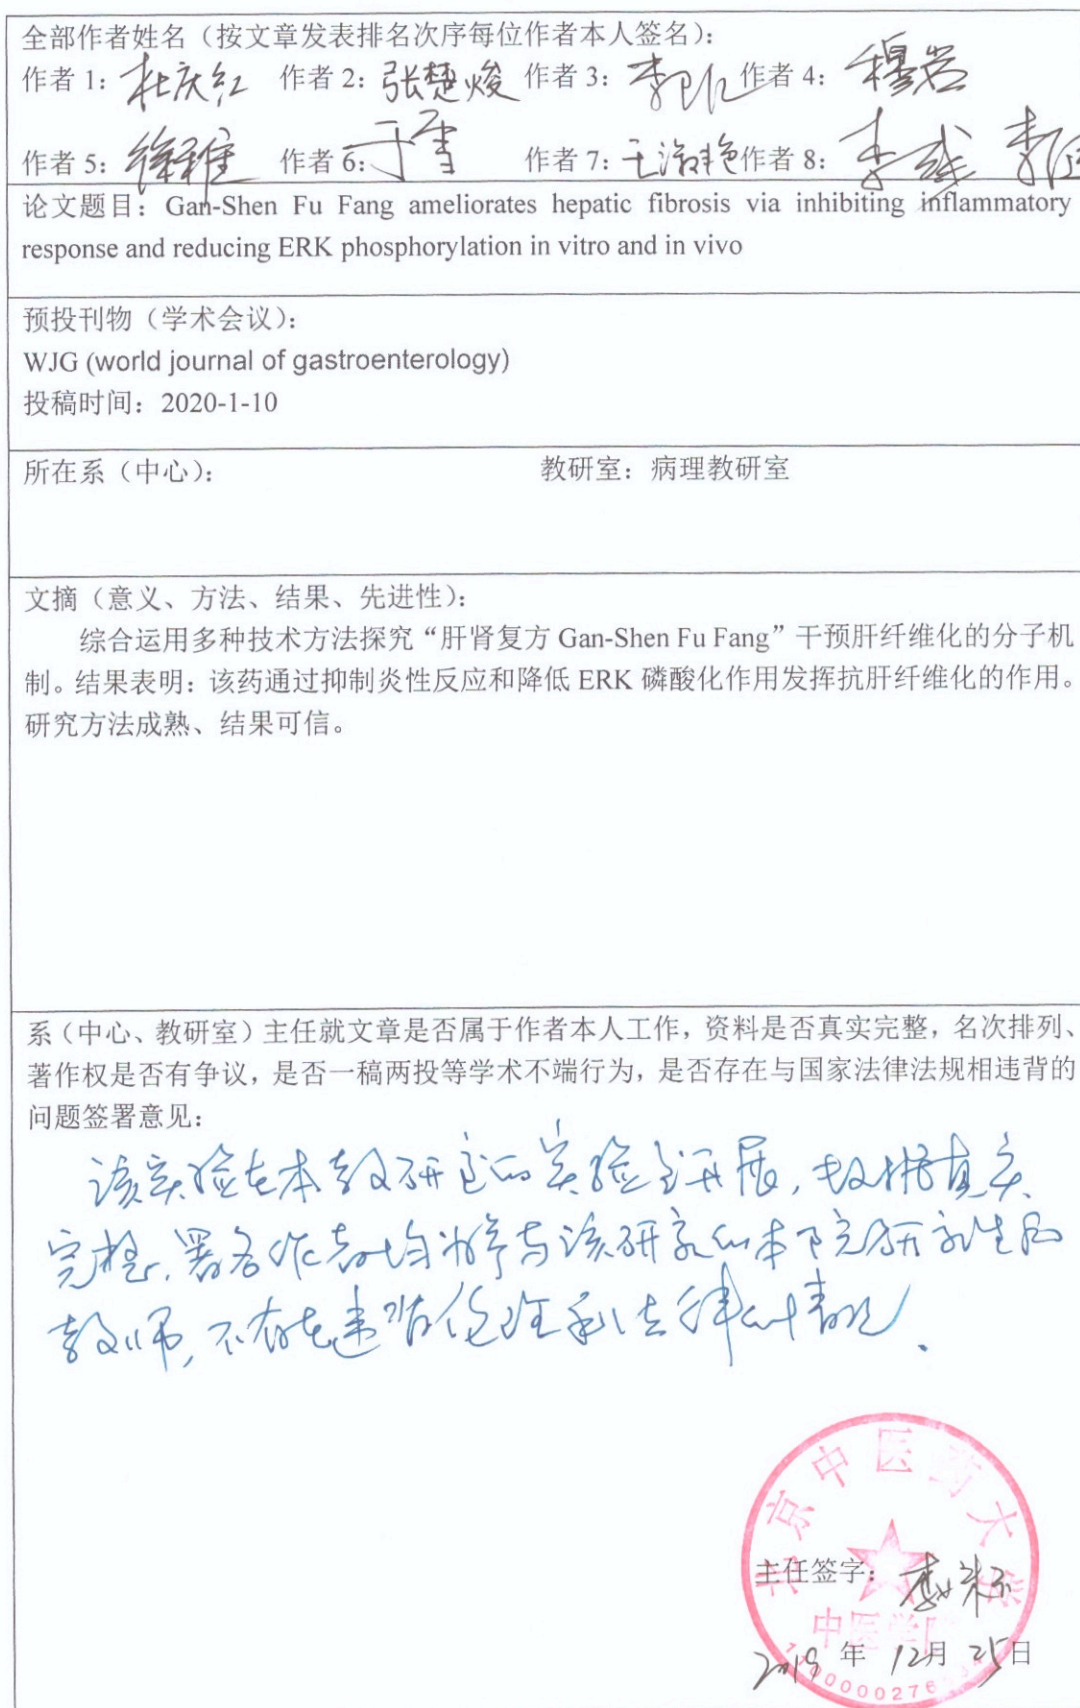 全部作者姓名（按文章发表排名次序每位作者本人签名）：
作者 1：杜庆红 作者 2：张楚焌 作者 3： 作者 4：穆岩
作者 5：徐雅 作者 6：于雪 作者 7：王淑艳 作者 8：
论文题目：Gan-Shen Fu Fang ameliorates hepatic fibrosis via inhibiting inflammatory
response and reducing ERK phosphorylation in vitro and in vivo
预投刊物（学术会议）：
WJG (world journal of gastroenterology)
投稿时间：2020-1-10
所在系（中心）： 教研室：病理教研室
文摘（意义、方法、结果、先进性）：
综合运用多种技术方法探究“肝肾复方 Gan-Shen Fu Fang”干预肝纤维化的分子机
制。结果表明：该药通过抑制炎性反应和降低 ERK 磷酸化作用发挥抗肝纤维化的作用。
研究方法成熟、结果可信。
系（中心、教研室）主任就文章是否属于作者本人工作，资料是否真实完整，名次排列、
著作权是否有争议，是否一稿两投等学术不端行为，是否存在与国家法律法规相违背的
问题签署意见：
该实验在本教研室的实验室开展，数据真实
完整，署名作者均为参与该研究的本院研究生和
教师，不存在违背伦理和法律的情况．
北京中医药大学
主任签字：
中医学院
2019 年 12月 25日